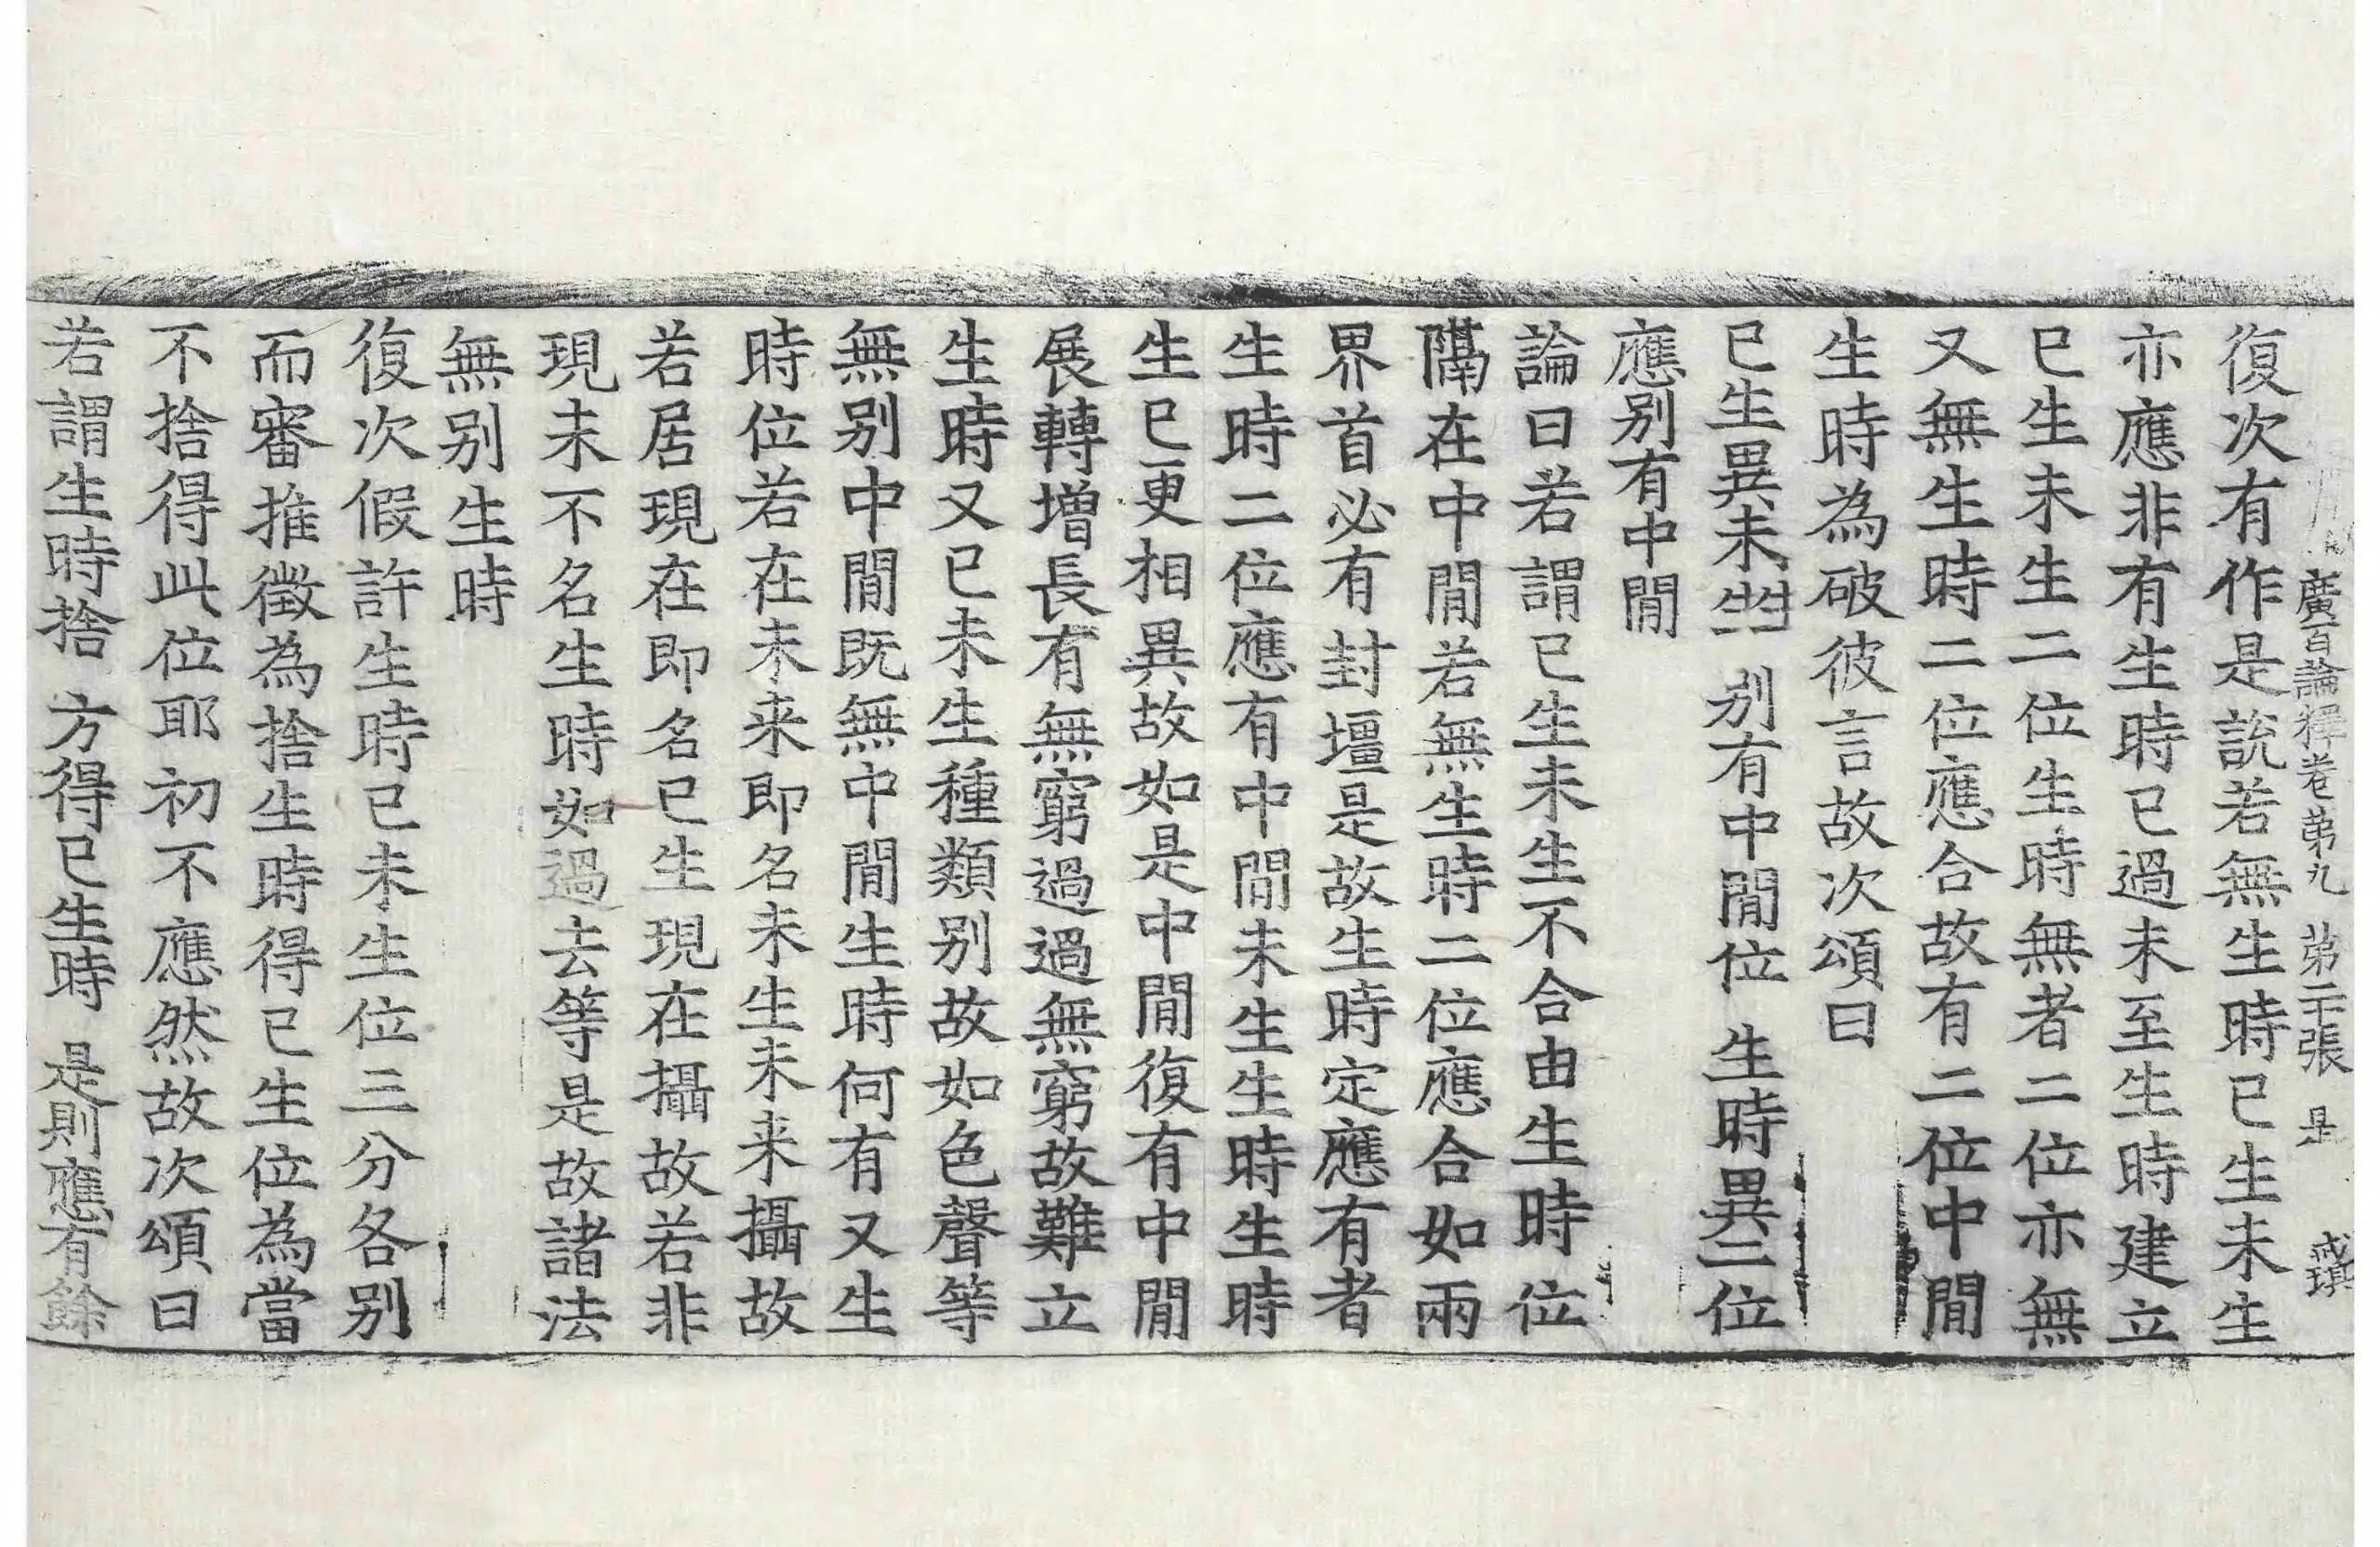 廣百論釋卷第九 第二十張 是 戒琪
復次有作是說若無生時已生未生
亦應非有生時已過未至生時建立
已生未生二位生時無者二位亦無
又無生時二位應合故有二位中間
生時為破彼言故次頌曰
已生異未生 別有中間位 生時異二位
應別有中間
論曰若謂已生未生不合由生時位
隔在中間若無生時二位應合如兩
界首必有封壃是故生時定應有者
生時二位應有中間未生生時生時
生已更相異故如是中間復有中間
展轉增長有無窮過過無窮故難立
生時又已未生種類別故如色聲等
無別中間既無中間生時何有又生
時位若在未來即名未生未来攝故
若居現在即名已生現在攝故若非
現未不名生時如過去等是故諸法
無別生時
復次假許生時已未生位三分各別
而審推徵為捨生時得已生位為當
不捨得此位耶初不應然故次頌曰
若謂生時捨 方得已生時 是則應有餘